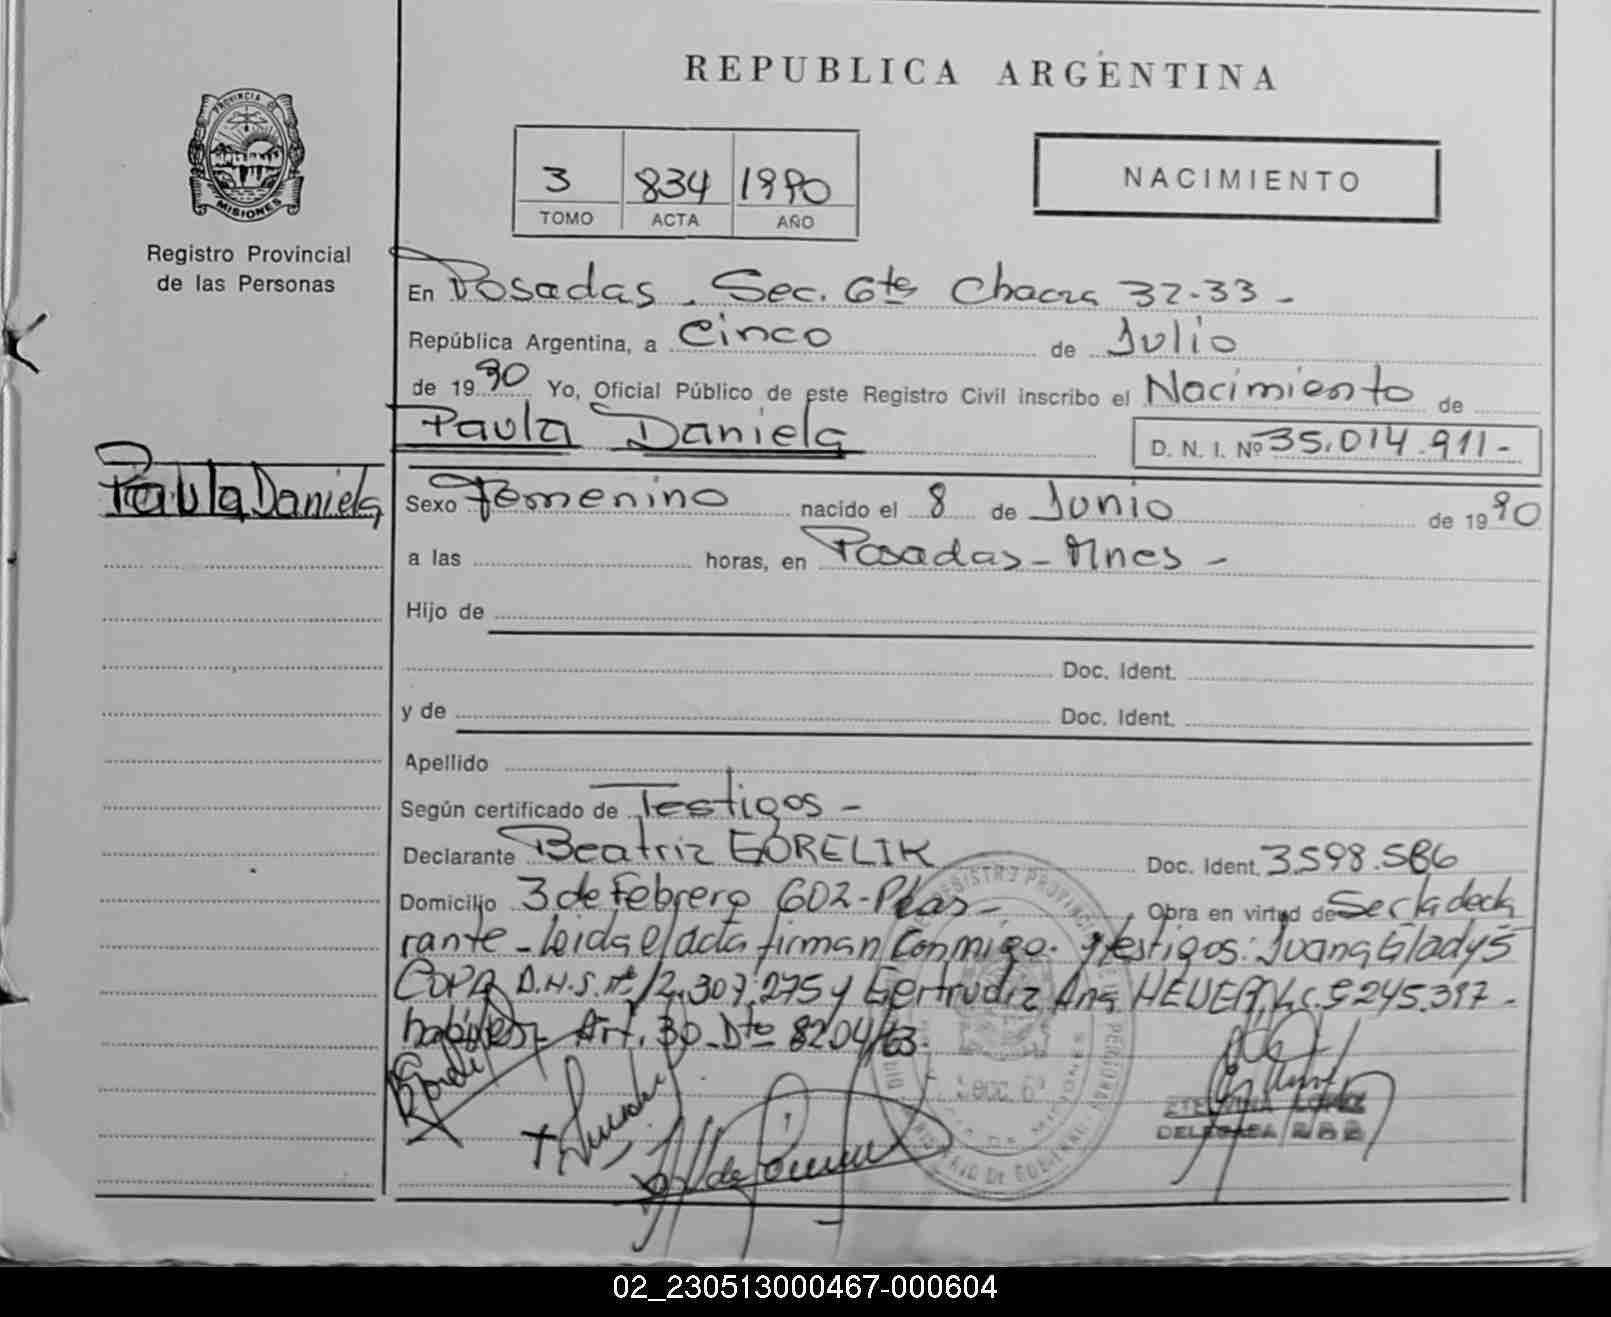 REPUBLICA ARGENTINA
PROVINCIA DE
MISIONES
Registro Provincial
de las Personas
3 834 1990
TOMO ACTA AÑO
NACIMIENTO
En Posadas. Sec. 6ta Chacra 32-33 -
República Argentina, a Cinco de Julio
de 1990 Yo, Oficial Público de este Registro Civil inscribo el Nacimiento de
Paula Daniela D. N. I. Nº 35.014.911-
Paula Daniela
Sexo Femenino nacido el 8 de Junio de 1990
a las horas, en Posadas - Mnes -
Hijo de
Doc. Ident.
y de Doc. Ident.
Apellido
Según certificado de Testigos -
Declarante Beatriz GORELIK Doc. Ident. 3.598.586
Domicilio 3 de Febrero 602 - Pdas - Obra en virtud de Ser la decla
rante - Leida el acta firman conmigo. y testigos: Juana Gladys
COPA D.N.I. nº 12.307.275 y Gertrudiz Ana L.C. 9245.397 -
Art. 30 - Dto 8204/63.
REGISTRO PROVINCIAL DE LAS PERSONAS
SECC. 6ª
MISIONES
ETELVINA LOPEZ
DELEGADA
02_230513000467-000604